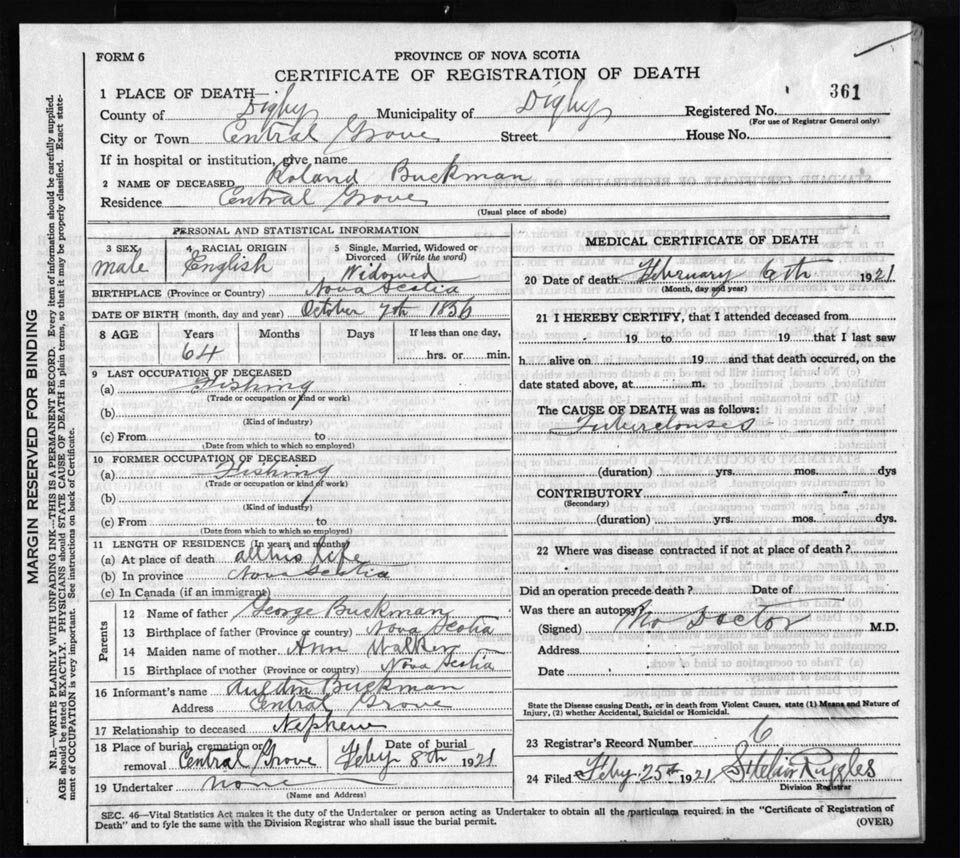 FORM 6
PROVINCE OF NOVA SCOTIA
CERTIFICATE OF REGISTRATION OF DEATH
1 PLACE OF DEATH—
361
County of Digby Municipality of Digby Registered No.
(For use of Registrar General only)
City or Town Central Grove Street House No.
If in hospital or institution, give name
2 NAME OF DECEASED Roland Buckman
Residence Central Grove
(Usual place of abode)
PERSONAL AND STATISTICAL INFORMATION
3 SEX 4 RACIAL ORIGIN 5 Single, Married, Widowed or Divorced (Write the word)
male English Widowed
BIRTHPLACE (Province or Country) Nova Scotia
DATE OF BIRTH (month, day and year) October 7th 1856
8 AGE Years Months Days If less than one day,
64 hrs. or min.
9 LAST OCCUPATION OF DECEASED
(a) Fishing
(Trade or occupation or kind or work)
(b)
(Kind of industry)
(c) From to
(Date from which to which so employed)
10 FORMER OCCUPATION OF DECEASED
(a) Fishing
(Trade or occupation or kind of work)
(b)
(Kind of industry)
(c) From to
(Date from which to which so employed)
11 LENGTH OF RESIDENCE (In years and months)
(a) At place of death all his life
(b) In province Nova Scotia
(c) In Canada (if an immigrant)
Parents
12 Name of father George Buckman
13 Birthplace of father (Province or country) Nova Scotia
14 Maiden name of mother Ann Walker
15 Birthplace of mother (Province or country) Nova Scotia
16 Informant's name Austin Buckman
Address Central Grove
17 Relationship to deceased Nephew
18 Place of burial, cremation or removal Central Grove Date of burial Feby 8th 1921
19 Undertaker none
(Name and Address)
MEDICAL CERTIFICATE OF DEATH
20 Date of death February 6th 1921
(Month, day and year)
21 I HEREBY CERTIFY, that I attended deceased from
19 to 19 that I last saw
h alive on 19 and that death occurred, on the
date stated above, at m.
The CAUSE OF DEATH was as follows:
Tuberclouses
(duration) yrs. mos. dys
CONTRIBUTORY
(Secondary)
(duration) yrs. mos. dys.
22 Where was disease contracted if not at place of death?
Did an operation precede death? Date of
Was there an autopsy?
(Signed) No Doctor M.D.
Address
Date
State the Disease causing Death, or in death from Violent Causes, state (1) Means and Nature of
Injury, (2) whether Accidental, Suicidal or Homicidal.
23 Registrar's Record Number 6
24 Filed Feby 25th 1921 Ruggles
Division Registrar
SEC. 46—Vital Statistics Act makes it the duty of the Undertaker or person acting as Undertaker to obtain all the particulars required in the "Certificate of Registration of
Death" and to fyle the same with the Division Registrar who shall issue the burial permit.
(OVER)
MARGIN RESERVED FOR BINDING
N.B.—WRITE PLAINLY WITH UNFADING INK—THIS IS A PERMANENT RECORD. Every item of information should be carefully supplied.
AGE should be stated EXACTLY. PHYSICIANS should STATE CAUSE OF DEATH in plain terms, so that it may be properly classified. Exact state-
ment of OCCUPATION is very important. See instructions on back of Certificate.